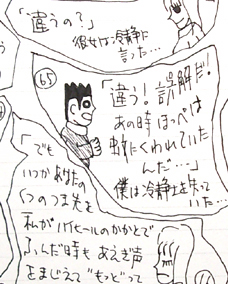 「違うの？」
彼女は冷静に
言った…
65
「違う！誤解だ！
あの時ほっぺは
蚊にくわれていた
んだ…」
僕は冷静士を失って
いた…
「でも
いつかあなたの
くつのつま先を
私がハイヒールのかかとで
ふんだ時もあえぎ声
をまじえて“もっど”って